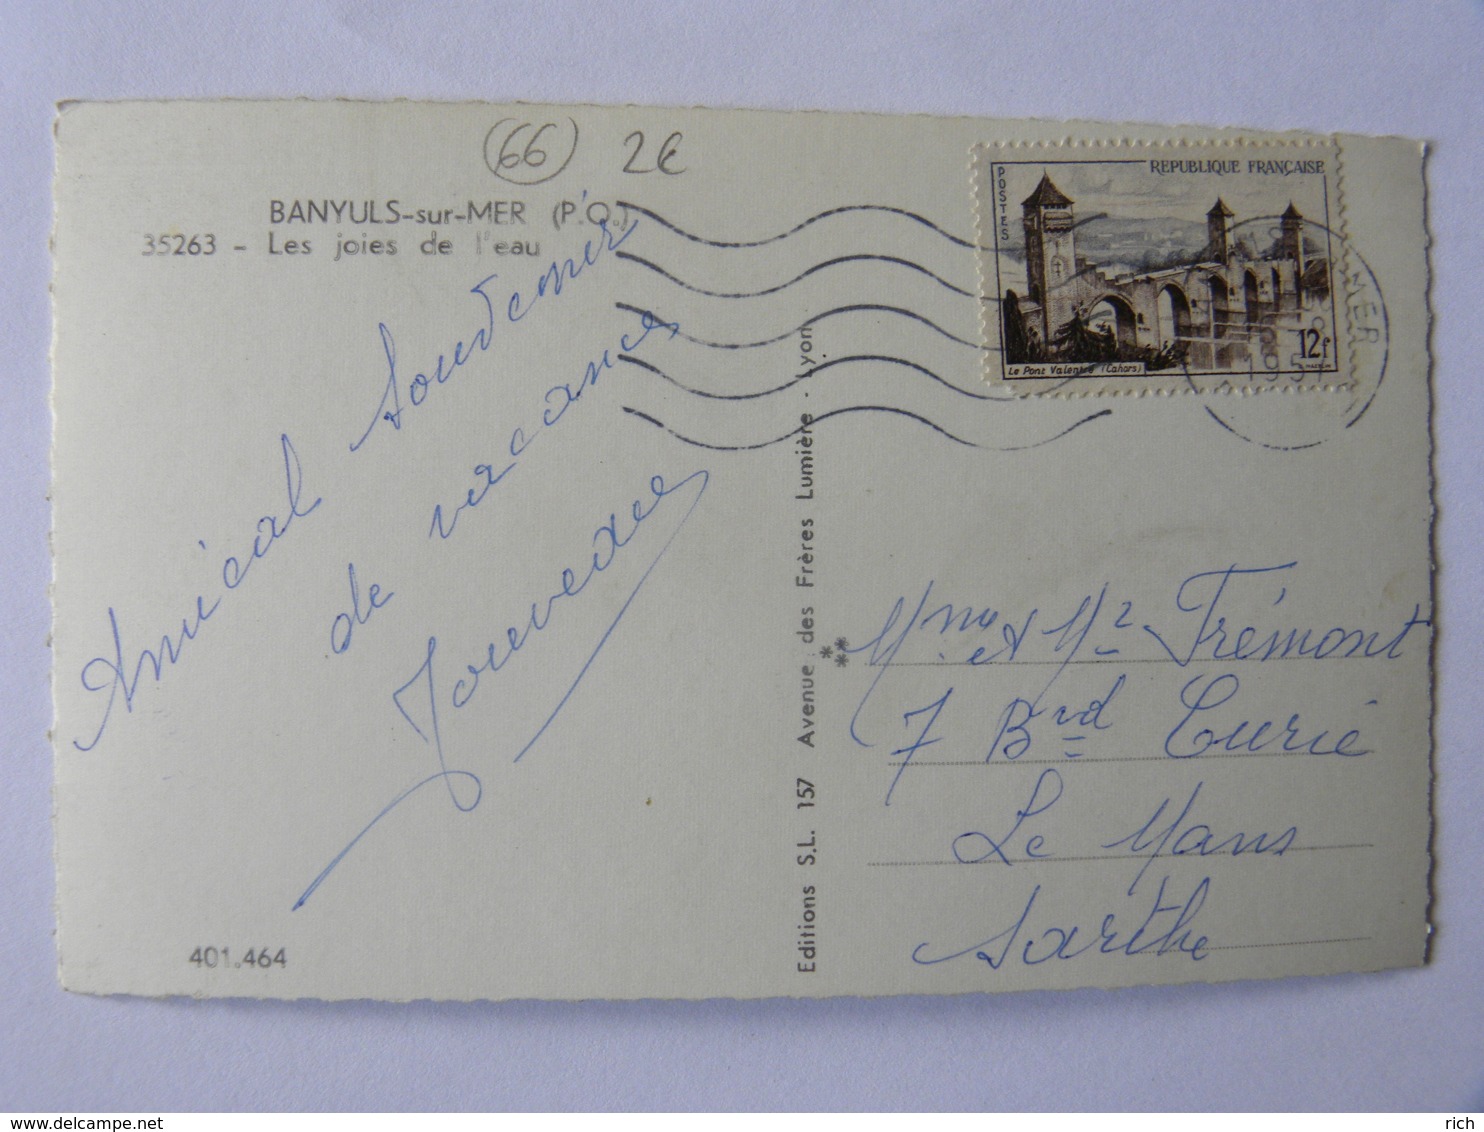 66 2€
BANYULS-sur-MER (P.O.)
35263 - Les joies de l'eau
Amical Souvenir
de vacances
401.464
Editions S.L. 157 Avenue des Frères Lumière - Lyon
***
POSTES
REPUBLIQUE FRANÇAISE
Le Pont Valentré (Cahors)
12f
MER
195
Mme et Mr Trémont
7 Bvd Curie
Le Mans
Sarthe
delcampe.net
rich